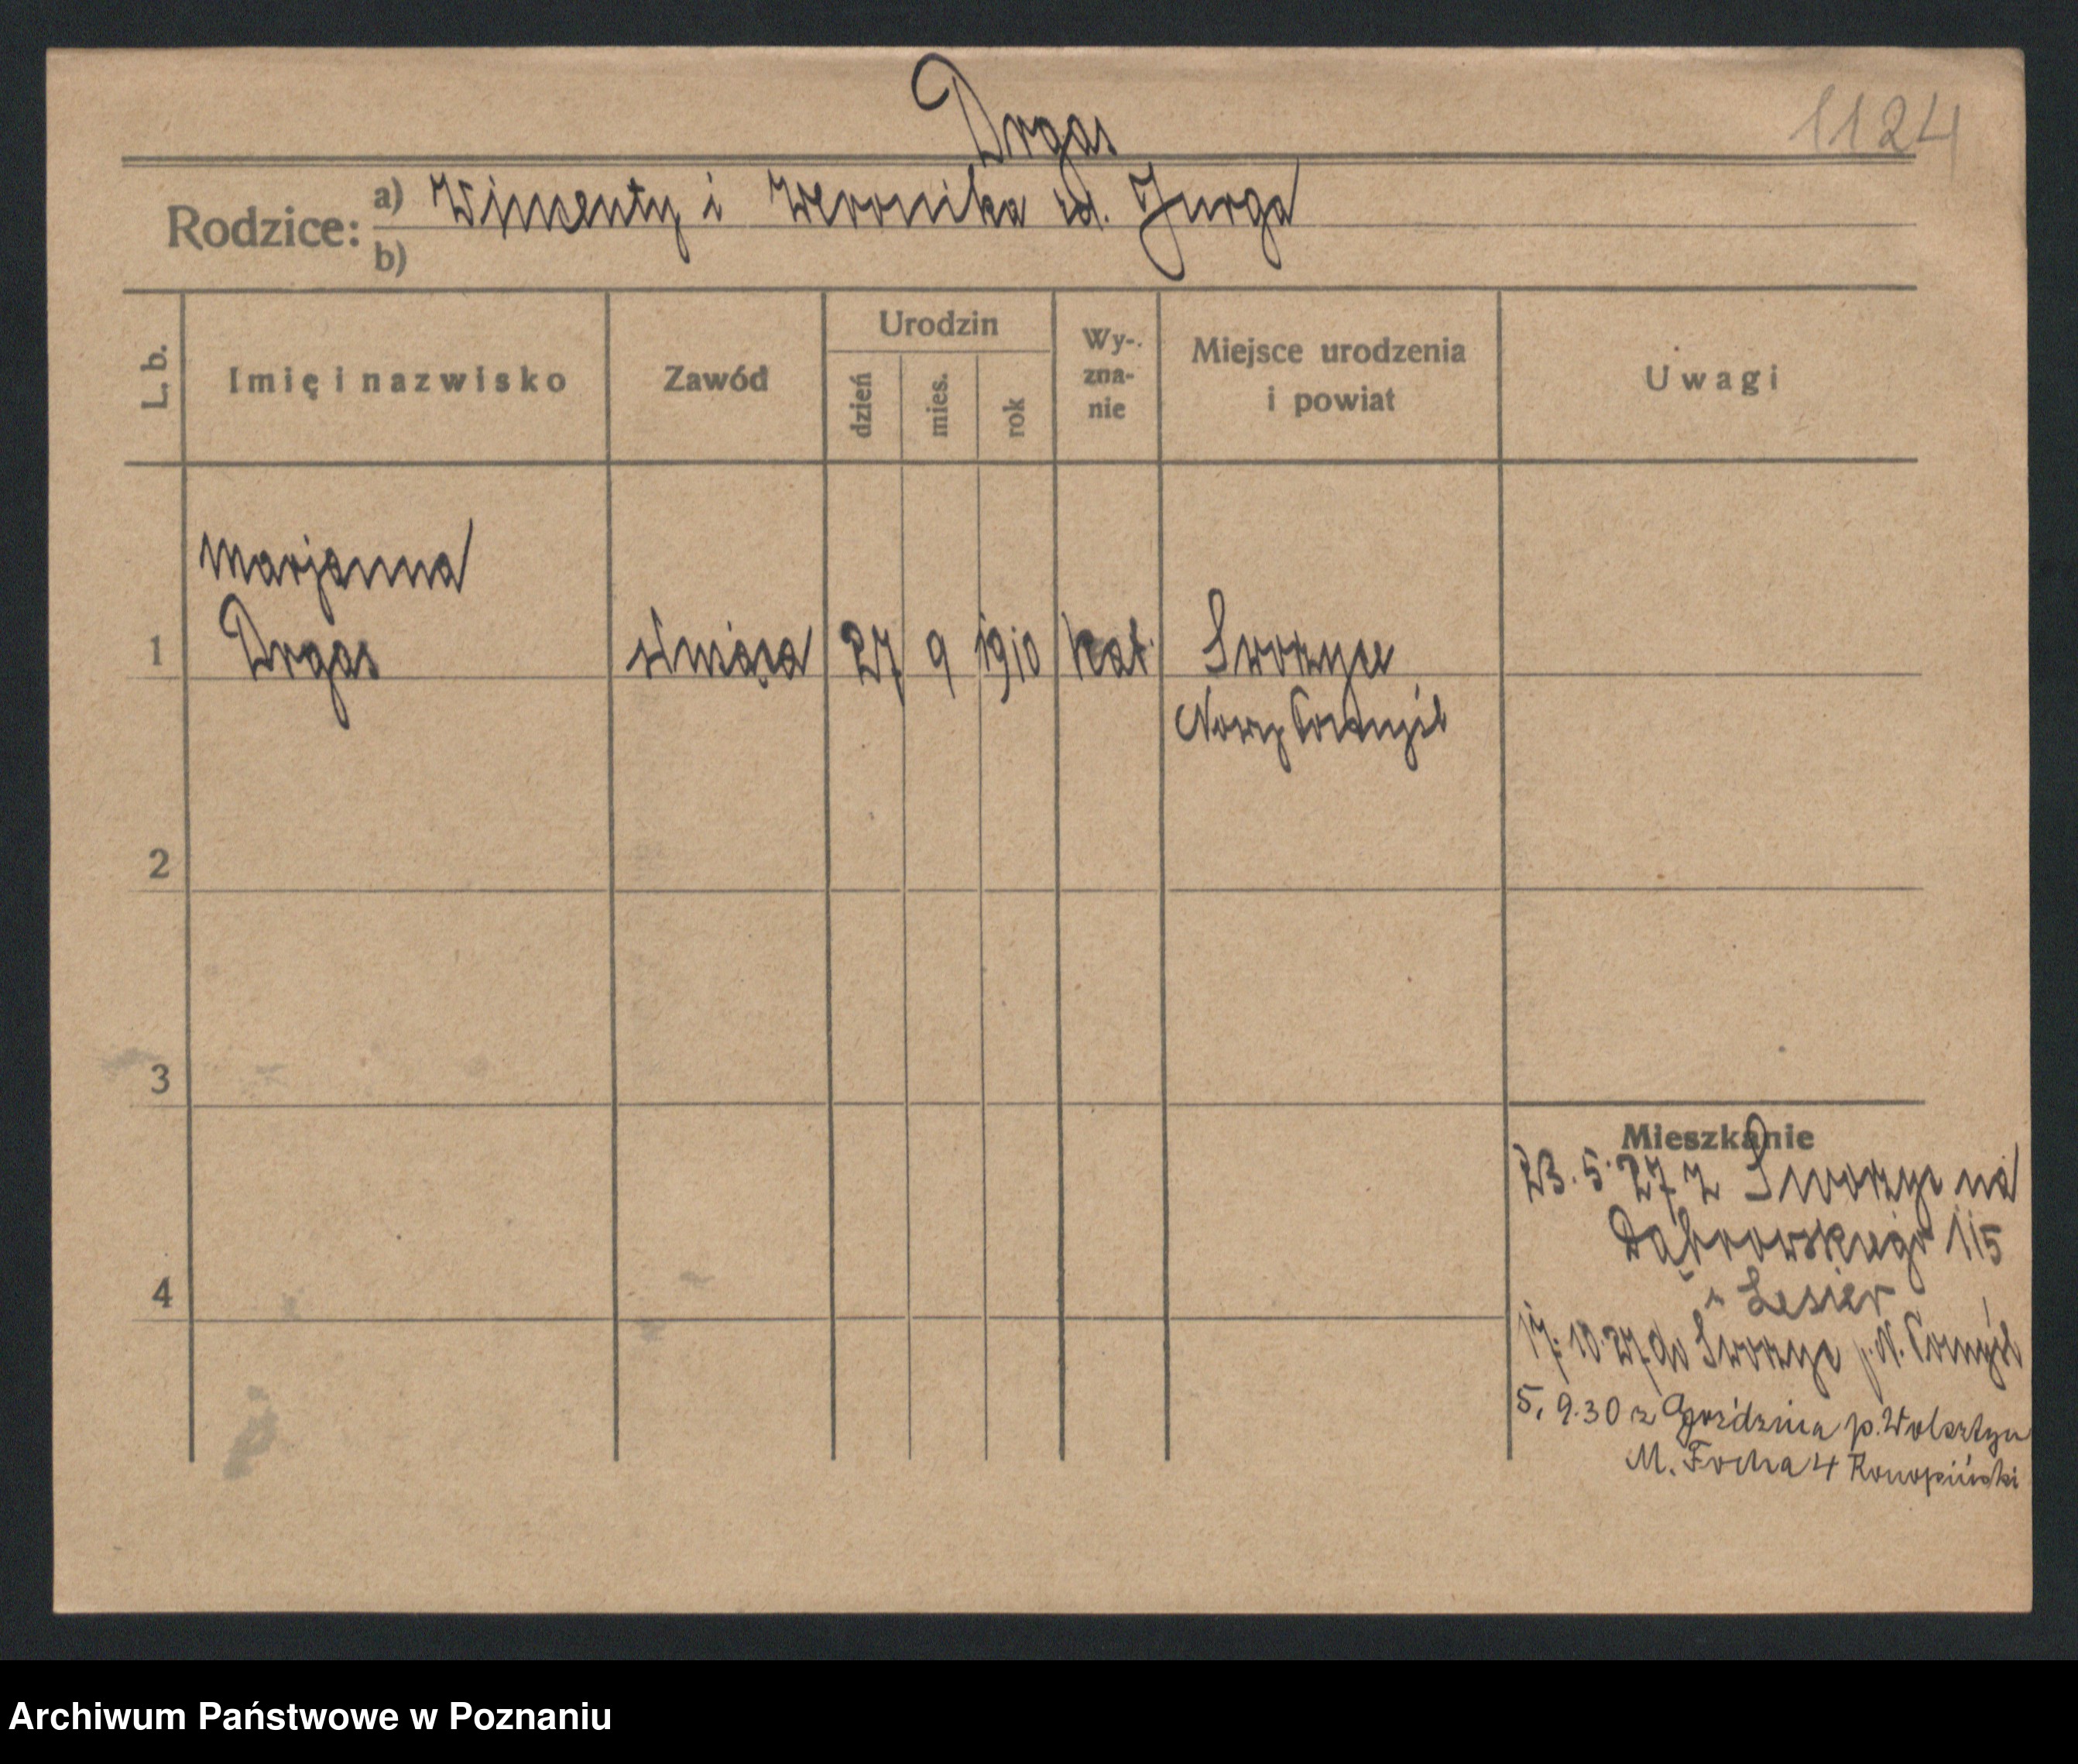 Drgas
1124
Rodzice: a) Wincenty i Weronika zd. Jurga
b)
L. b.
Imię i nazwisko
Zawód
Urodzin
dzień
mies.
rok
Wy-
zna-
nie
Miejsce urodzenia
i powiat
Uwagi
Marjanna
1 Drgas służąca 27 9 1910 kat. Sworzyce
Nowy Tomyśl
2
3
4
Mieszkanie
23.5.27 z Sworzyc na
Dąbrowskiego 115
Lesier
17.10.27 do Sworzyc p. N. Tomyśl
5.9.30 z Goździna p. Wolsztyn
M. Focha 4 Konopiński
Archiwum Państwowe w Poznaniu